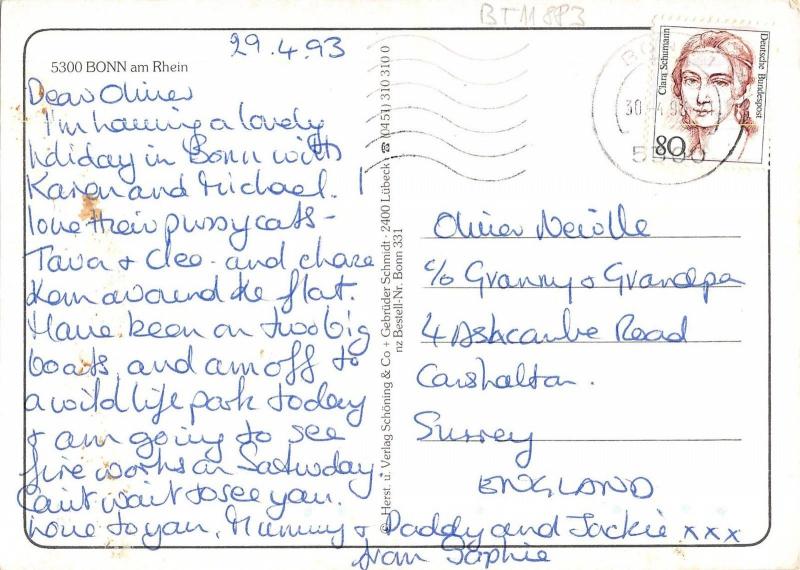 BTM 883
29.4.93
5300 BONN am Rhein
Dear Oliver
I'm having a lovely
holiday in Bonn with
Karen and Michael. I
love their pussycats -
Tava & Cleo - and chase
them around the flat.
Have been on two big
boats and am off to
a wild life park today
& am going to see
fire works on Saturday.
Can't wait to see you.
Love to you, Mummy & Daddy and Jackie xxx
from Sophie
© Herst. u. Verlag Schöning & Co + Gebrüder Schmidt · 2400 Lübeck · ☎ (0451) 310 310 0
nz Bestell-Nr. Bonn 331
BONN
30.-4.93
5300
Clara Schumann
Deutsche Bundespost
80
Oliver Neville
c/o Granny & Grandpa
4 Ashcombe Road
Carshalton.
Surrey
ENGLAND